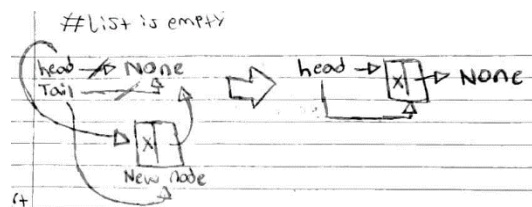 #List is empty
head None
Tail
X
New node
head X None